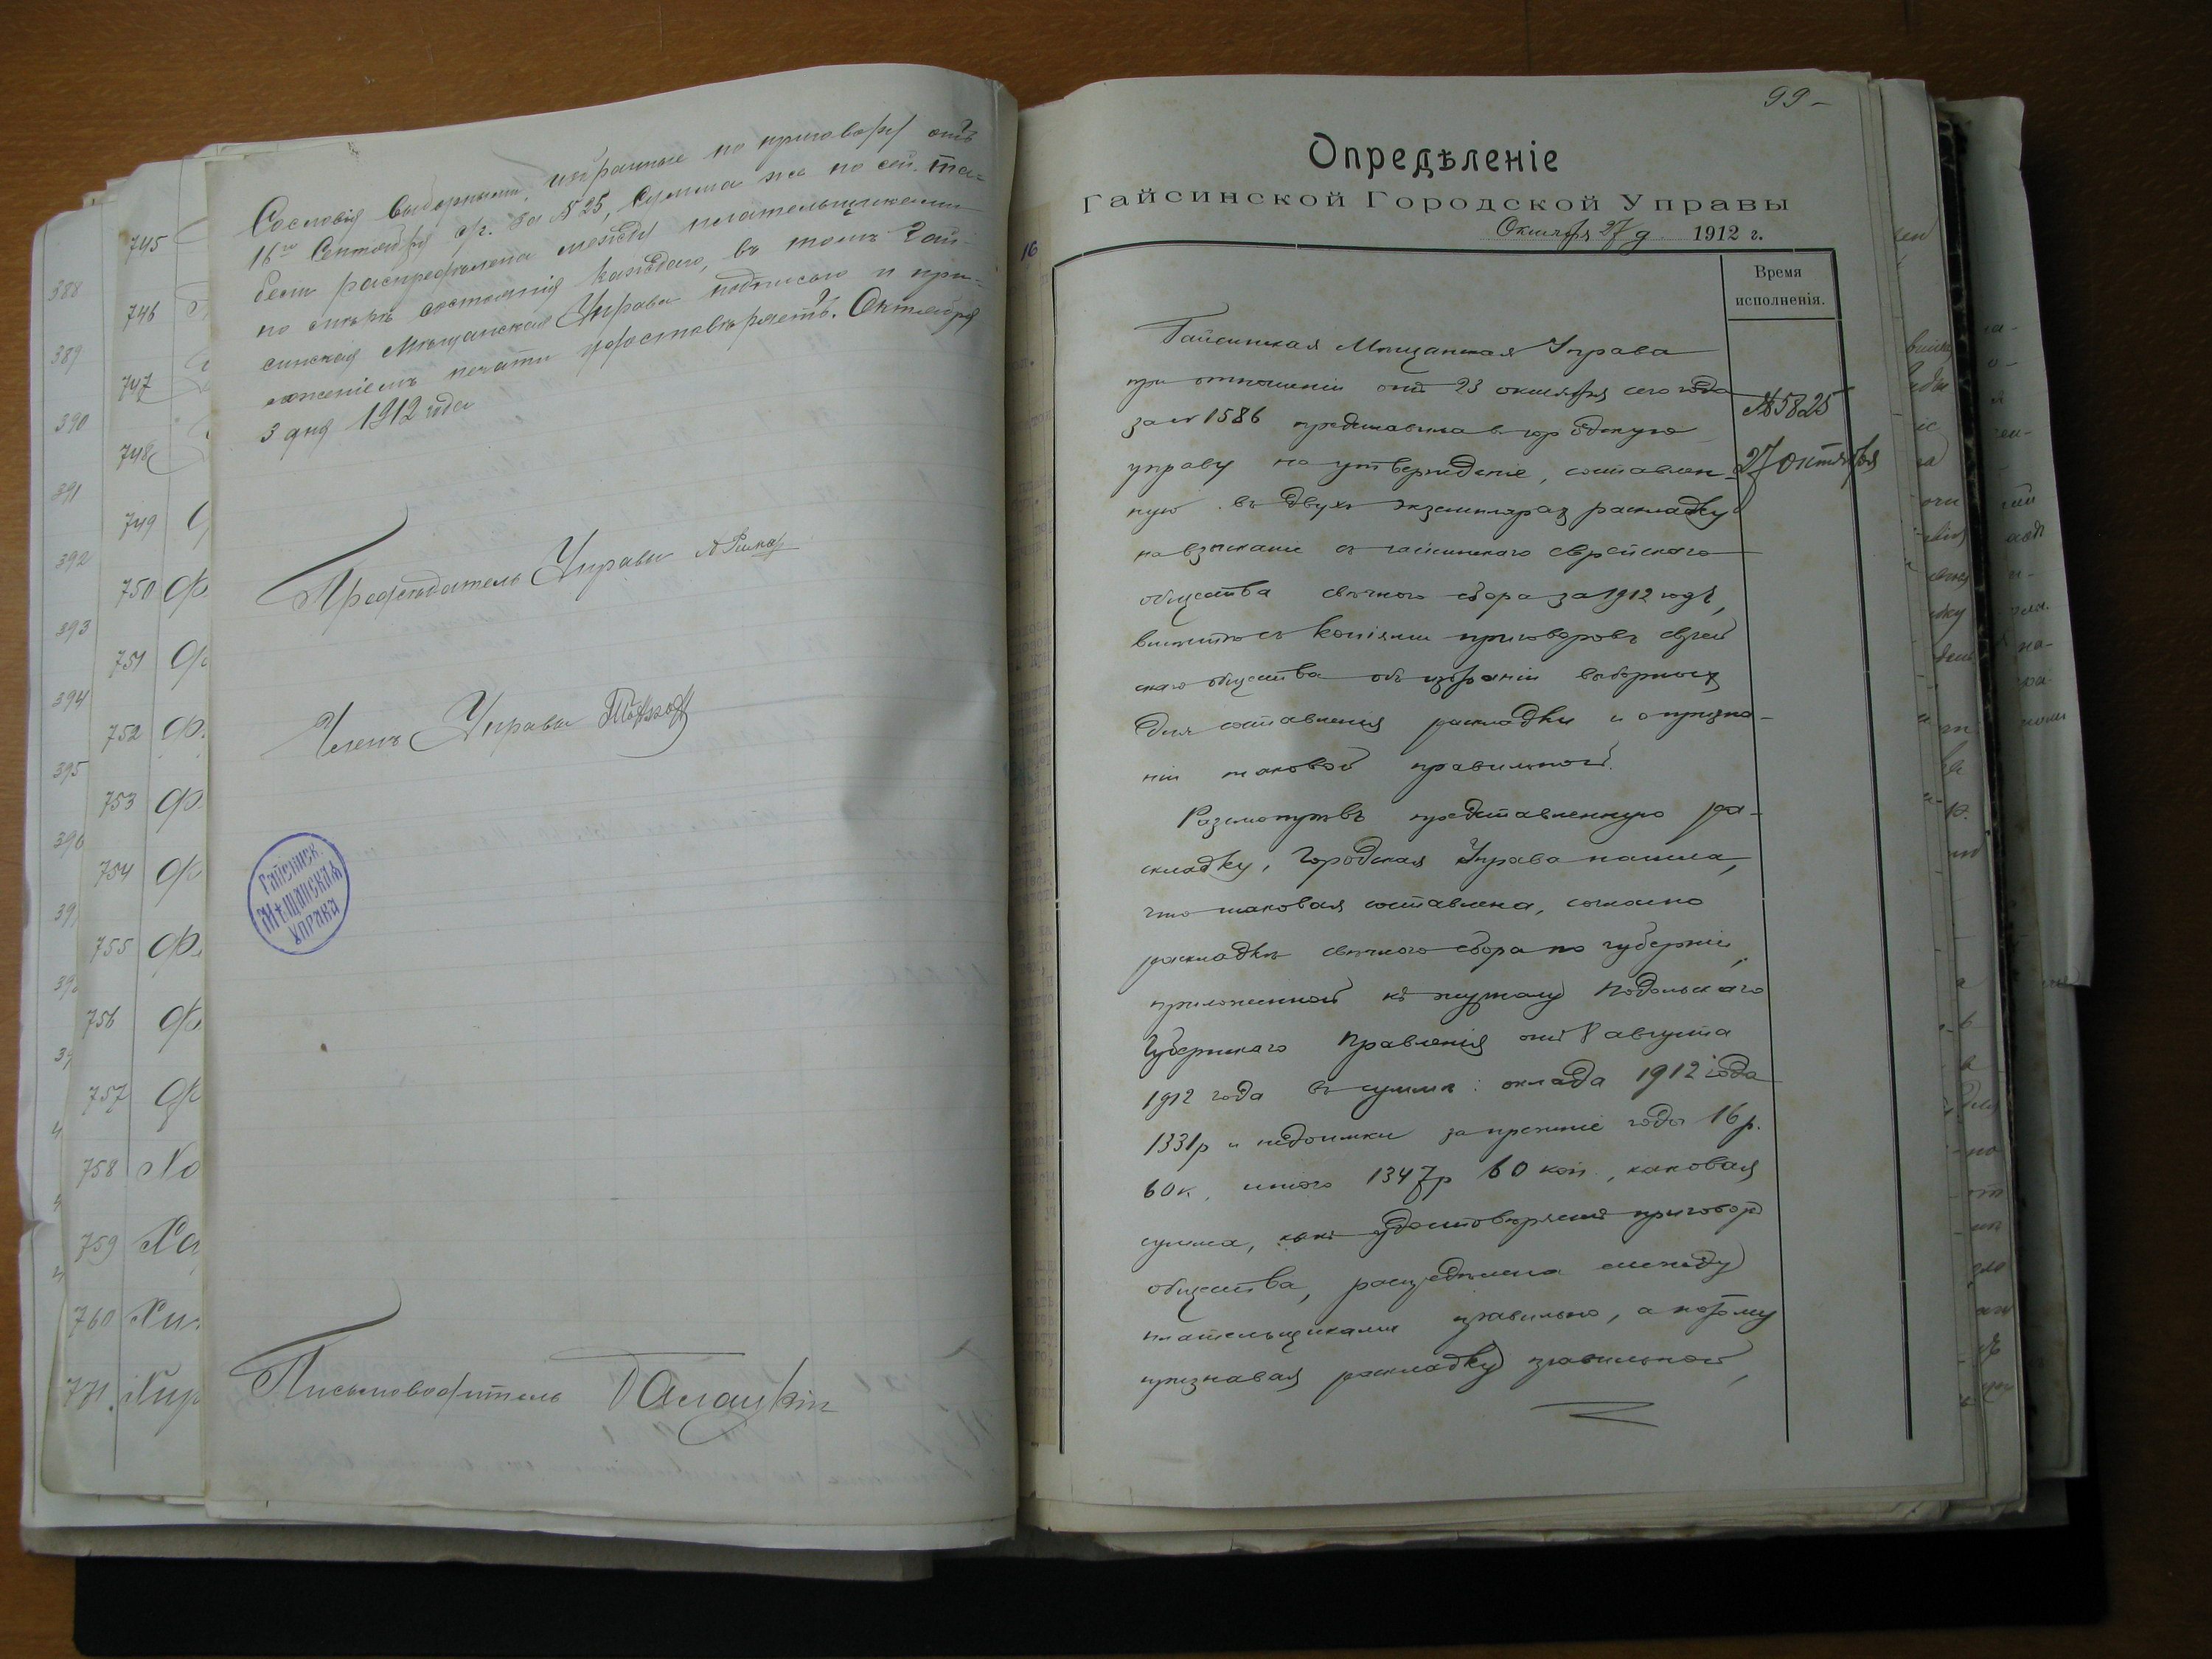 Сословія выборными, избранные по приговору отъ
16го Сентября с/г. за № 25, сумма же по сей та-
бели распредѣлена между плательщиками
по мѣрѣ состоянія каждаго, въ томъ Гай-
синская Мѣщанская Управа подписью и при-
ложеніемъ печати удостовѣряетъ. Октября
3 дня 1912 года
Предсѣдатель Управы
Членъ Управы
Гайсинск.
Мѣщанская
Управа
Письмоводитель
388
389
390
391
392
393
394
395
396
745
746
747
748
749
750 Ф
751 Ф
752 Ф.
753 Ф.
754 Ф
755 Ф.
756 Ф
757 Ф
758 Ха
759 Ха
760
771.
99-
Опредѣленіе
Гайсинской Городской Управы
Октября 27 д. 1912 г.
16
Время
исполненія.
№ 5825
27 октября
Гайсинская Мѣщанская Управа
при отношеніи отъ 23 октября сего года
за № 1586 представила въ городскую
управу на утвержденіе, составлен-
ную въ двухъ экземплярах раскладку
на взысканіе съ гайсинскаго еврейскаго
общества свѣчного сбора за 1912 годъ,
вмѣстѣ съ копіями приговоровъ еврей
скаго общества объ избраніи выборных
для составленія раскладки и о призна-
ніи таковой правильной.
Разсмотрѣвъ представленную ра-
складку, Городская Управа нашла,
что таковая составлена, согласно
раскладкѣ свѣчного сбора по губерніи,
приложенной къ журналу Подольскаго
Губернскаго Правленія отъ 8 августа
1912 года въ суммѣ: оклада 1912 года
1331р и недоимки за прежніе годы 16 р.
60 к, итого 1347р 60 коп., каковая
сумма, какъ удостовѣряетъ приговоръ
общества, распредѣлена между
плательщиками правильно, а потому
признавая раскладку правильной,